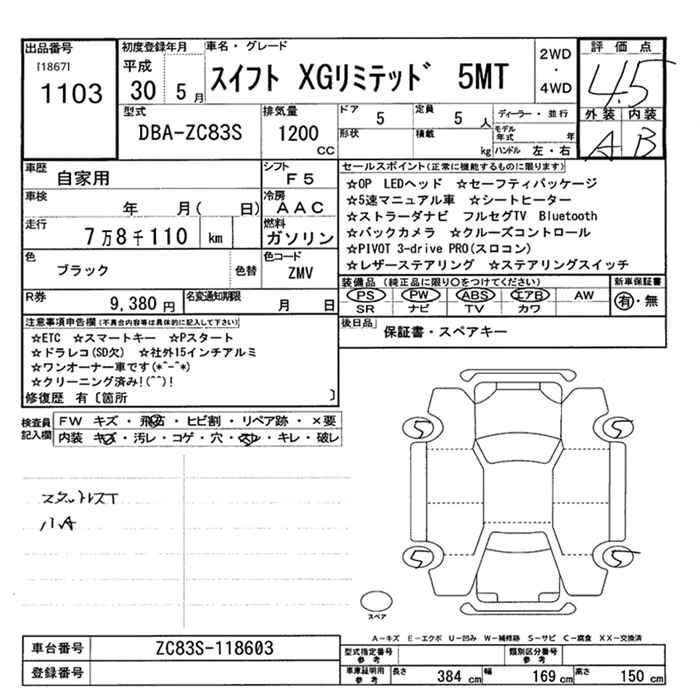 出品番号
[1867]
1103
初度登録年月
平成
30 5 月
車名・グレード
スイフト XGリミテッド 5MT
2WD
・
4WD
評価点
4.5
外装 内装
A B
型式
DBA-ZC83S
排気量
1200
CC
ドア 5
定員 5 人
形状
積載 kg
ディーラー・並行
モデル年式 年
ハンドル 左・右
車歴
自家用
シフト
F5
車検
年 月( 日)
冷房
AAC
走行
7万8千110 km
燃料
ガソリン
色
ブラック
色替
色コード
ZMV
R券
9,380 円
名変通知期限
月 日
セールスポイント(正常に機能するものに限ります)
☆OP LEDヘッド ☆セーフティパッケージ
☆5速マニュアル車 ☆シートヒーター
☆ストラーダナビ フルセグTV Bluetooth
☆バックカメラ ☆クルーズコントロール
☆PIVOT 3-drive PRO(スロコン)
☆レザーステアリング ☆ステアリングスイッチ
装備品 (純正品に限り○をつけてください)
PS PW ABS エアB AW
SR ナビ TV カワ
新車保証書
有・無
後日品
保証書・スペアキー
注意事項申告欄(不具合内容等は具体的に記入して下さい)
☆ETC ☆スマートキー ☆Pスタート
☆ドラレコ(SD欠) ☆社外15インチアルミ
☆ワンオーナー車です(*^-^*)
☆クリーニング済み!(^^)!
修復歴 有〔箇所 〕
検査員
記入欄
FW キズ・飛石・ヒビ割・リペア跡・×要
内装 キズ・汚レ・コゲ・穴・スレ・キレ・破レ
スタッドレスT
ハA
5
5
5
5
スペア
A-キズ E-エクボ U-凹み W-補修跡 S-サビ C-腐食 XX-交換済
車台番号
ZC83S-118603
登録番号
型式指定番号
参考
類別区分番号
参考
車庫証明用
参考
長さ 384 cm
幅 169 cm
高さ 150 cm